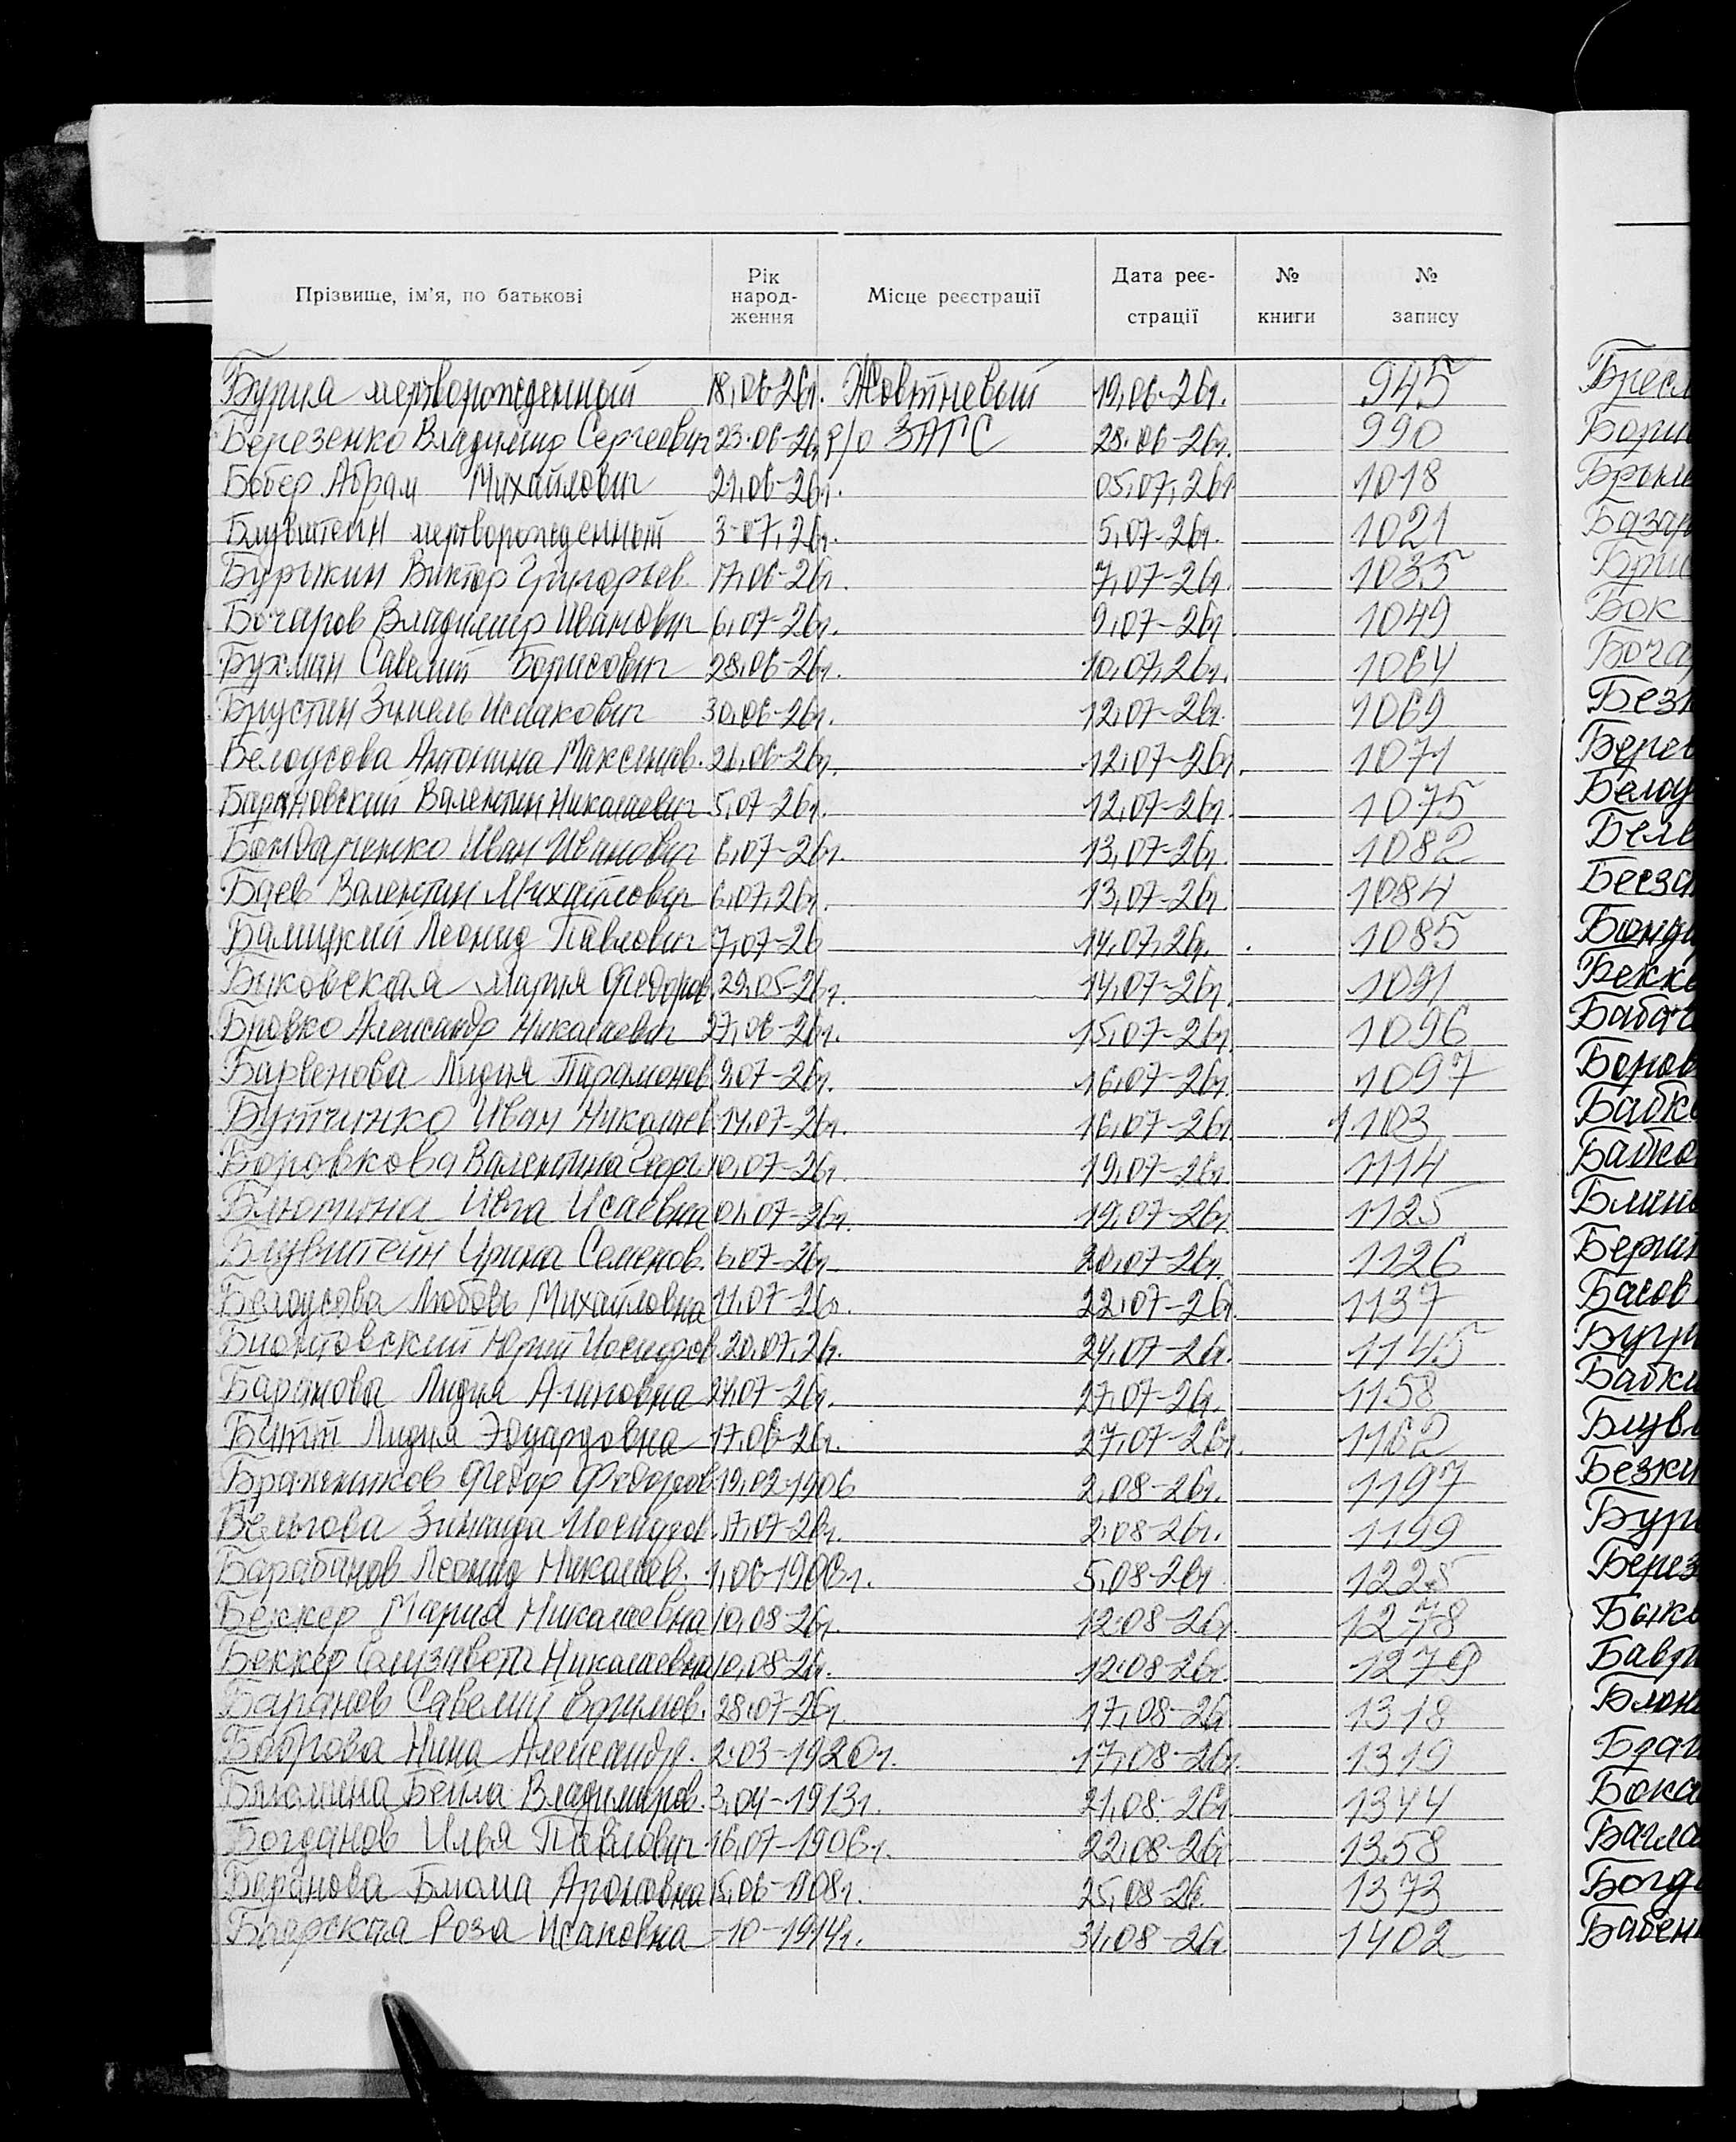 Прізвище, ім'я, по батькові Рік народ- ження Місце реєстрації Дата реє- страції № книги № запису
Бурия мертворожденный 18,06-26г. Жовтневый 19,06-26г. 945
Березенко Владимир Сергеевич 23.06-26г р/о ЗАГС 28.06-26г. 990
Бобер Абрам Михайлович 21,06-26г. 05,07,26г 1018
Блувштейн мертворожденный 3-07,26г. 5,07-26г. 1021
Бурыкин Виктор Григорьев. 17,06-26г. 7,07-26г. 1035
Бочаров Владимир Иванович 6,07-26г. 9,07-26г 1049
Бухман Савелий Борисович 28,06-26г. 10,07,26г. 1064
Брустин Зимель Исаакович 30,06-26г. 12,07-26г. 1069
Белоусова Антонина Максимов. 21,06-26г. 12,07-26г. 1071
Барановский Валентин Николаевич 5,07-26г. 12,07-26г. 1075
Бондаренко Иван Иванович 6,07-26г. 13,07-26г. 1082
Баев Валентин Михайлович 6,07,26г. 13,07-26г. 1084
Балицкий Леонид Павлович 7,07-26 14,07,26г. 1085
Быковская Мария Федоров. 29,05-26г. 14,07-26г. 1091
Бровко Александр Николаевич 27,06-26г. 15,07-26г. 1096
Барвенова Лидия Парамонов. 9,07-26г. 16,07-26г. 1097
Бутчинко Иван Николаев. 14.07-26г. 16,07-26г. 1103
Боровкова Валентина Георг. 10,07-26г. 19,07-26г. 1114
Блюмина Исаевна 01,07-26г. 19,07-26г. 1125
Блувштейн Ирина Семенов. 6,07-26г 20,07-26г. 1126
Белоусова Любовь Михайловна 11,07-26г. 22,07-26г. 1137
Юрий Иосифов. 20,07,26г. 24,07-26г. 1145
Баранова Лидия 24,07-26г. 27,07-26г. 1158
Битт Лидия Эдуардовна 17,06-26г. 27,07-26г. 1162
Бражников Федор Федоров. 19,02-1906 2,08-26г. 1197
Белгова Зинаида Иосифов. 17,07-26г. 2,08-26г. 1199
Барабанов Леонид Николаев. 1,06-1906г. 5,08-26г 1225
Беккер Мария Николаевна 10,08-26г. 12,08-26г. 1278
Беккер Елизавета Николаевна 10,08-26г. 12,08-26г. 1279
Баранов Савелий Ефимов. 28,07-26г. 17,08-26г 1318
Боброва Нина Александр. 2.03-1920г. 17,08-26г. 1319
Блюмина Бейла Владимиров. 3,04-1913г. 21,08-26г. 1344
Богданов Илья Павлович 16,07-1906г. 22,08-26г 1358
Баранова Блюма Ароновна 15,06-1908г. 25,08-26 1373
Боярская Роза Исаковна -10-1914г. 31,08-26г 1402